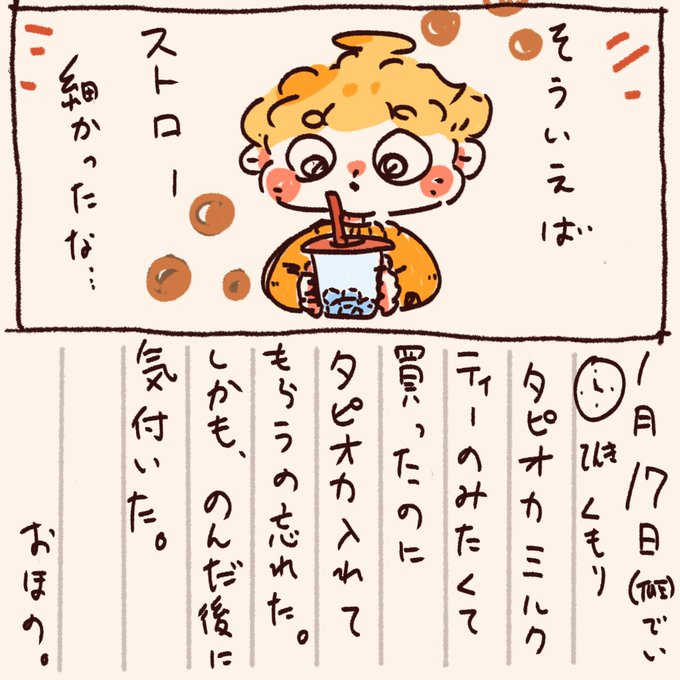 そういえば
ストロー
細かったな…
1月17日でい
てんき くもり
タピオカミルク
ティーのみたくて
買ったのに
タピオカ入れて
もらうの忘れた。
しかも、のんだ後に
気付いた。
おほの。